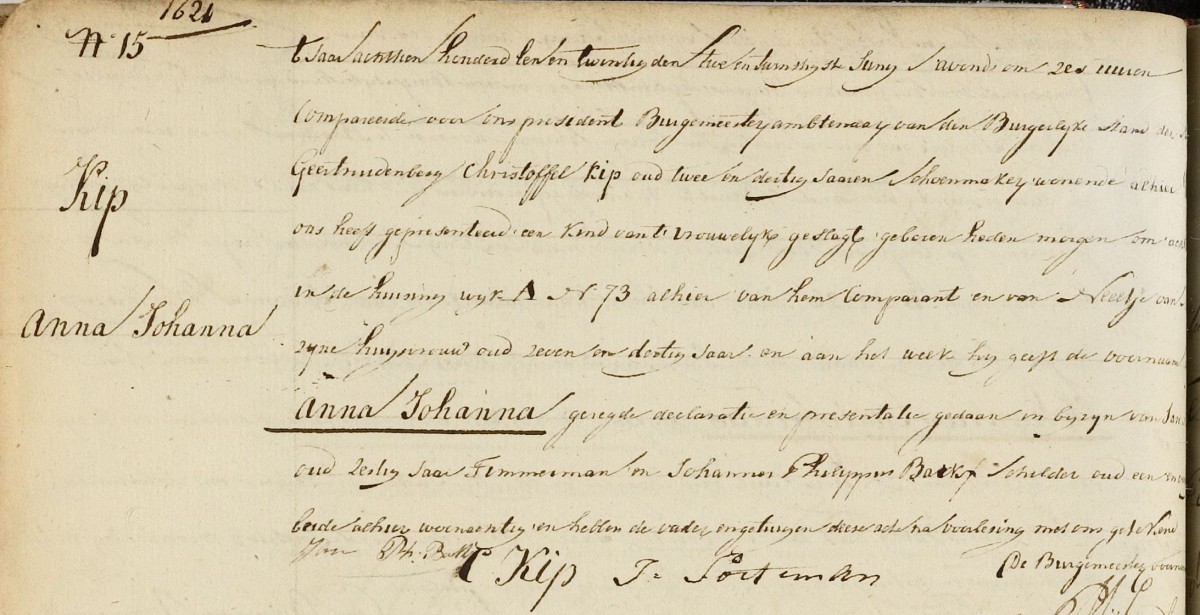 1821
N 15
t Jaar achttien honderd een en twintig den twe en twintigste Juny s'avonds om zes uuren
Compareerde voor ons president Burgemeester ambtenaar van den Burgerlyke Stand der
Geertruidenberg Christoffel Kip oud twee en dertig Jaaren Schoenmaker wonende alhier
ons heeft gepresenteerd een Kind van t vrouwelyk geslagt geboren heden morgen om
in de huising wyk A N 73 alhier van hem Comparant en van Neeltje van
zyne huysvrouw oud zeven en dertig Jaar en aan het welk hy geeft de voornaam
Anna Johanna gezegde declaratie en presentatie gedaan in byzyn van Jan
oud zestig Jaar Timmerman en Johannes Philippus Schilder oud een en
beide alhier woonachtig en hebben de vader en getuigen deese acte na voorlesing met ons getekend
Kip
Anna Johanna
Ph.
C Kip
J. Poteman
De Burgemeester